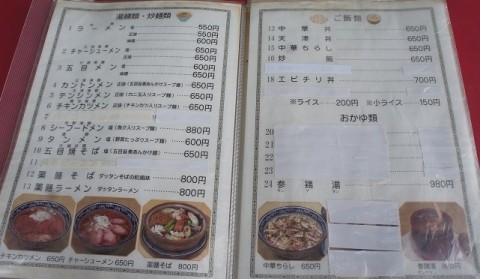 湯麺類・炒麺類
1 ラーメン 塩 550円
正油 550円
味噌 600円
2 チャーシューメン 塩 650円
正油 650円
3 五目メン 塩 600円
味噌 650円
4 カントンメン 正油 650円
5 テンシンメン 正油 650円
6 チキンカツメン 正油 650円
7
8 シーフードメン 塩 880円
9 タンメン 塩 600円
10 五目焼そば 塩 650円
11
12 薬膳そば ダッタンそばの和風味 800円
13 薬膳ラーメン ダッタンラーメン 800円
チキンカツメン 650円 チャーシューメン 650円 薬膳そば 800円
ご飯類
13 中華丼 650円
14 天津丼 650円
15 中華ちらし 650円
16 炒飯 650円
18 エビチリ丼 700円
※ライス 200円 ※小ライス 150円
おかゆ類
20
21
22
24 参鶏湯 980円
中華ちらし 650円 参鶏湯